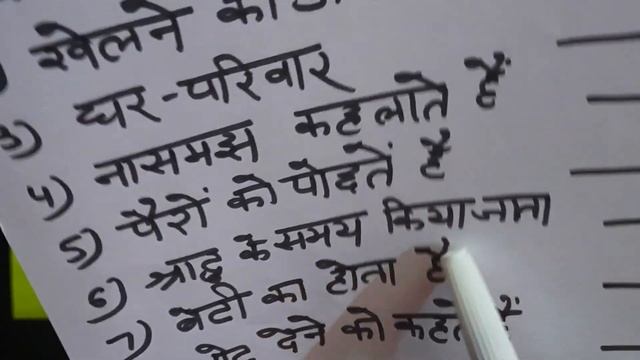 खेलने का
3) घर-परिवार
4) नासमझ कहलाते हैं
5) पैरों को पोदतें हैं
6) श्राद्ध के समय किया जाता
7) बेटी का होता है
देने को कहते हैं